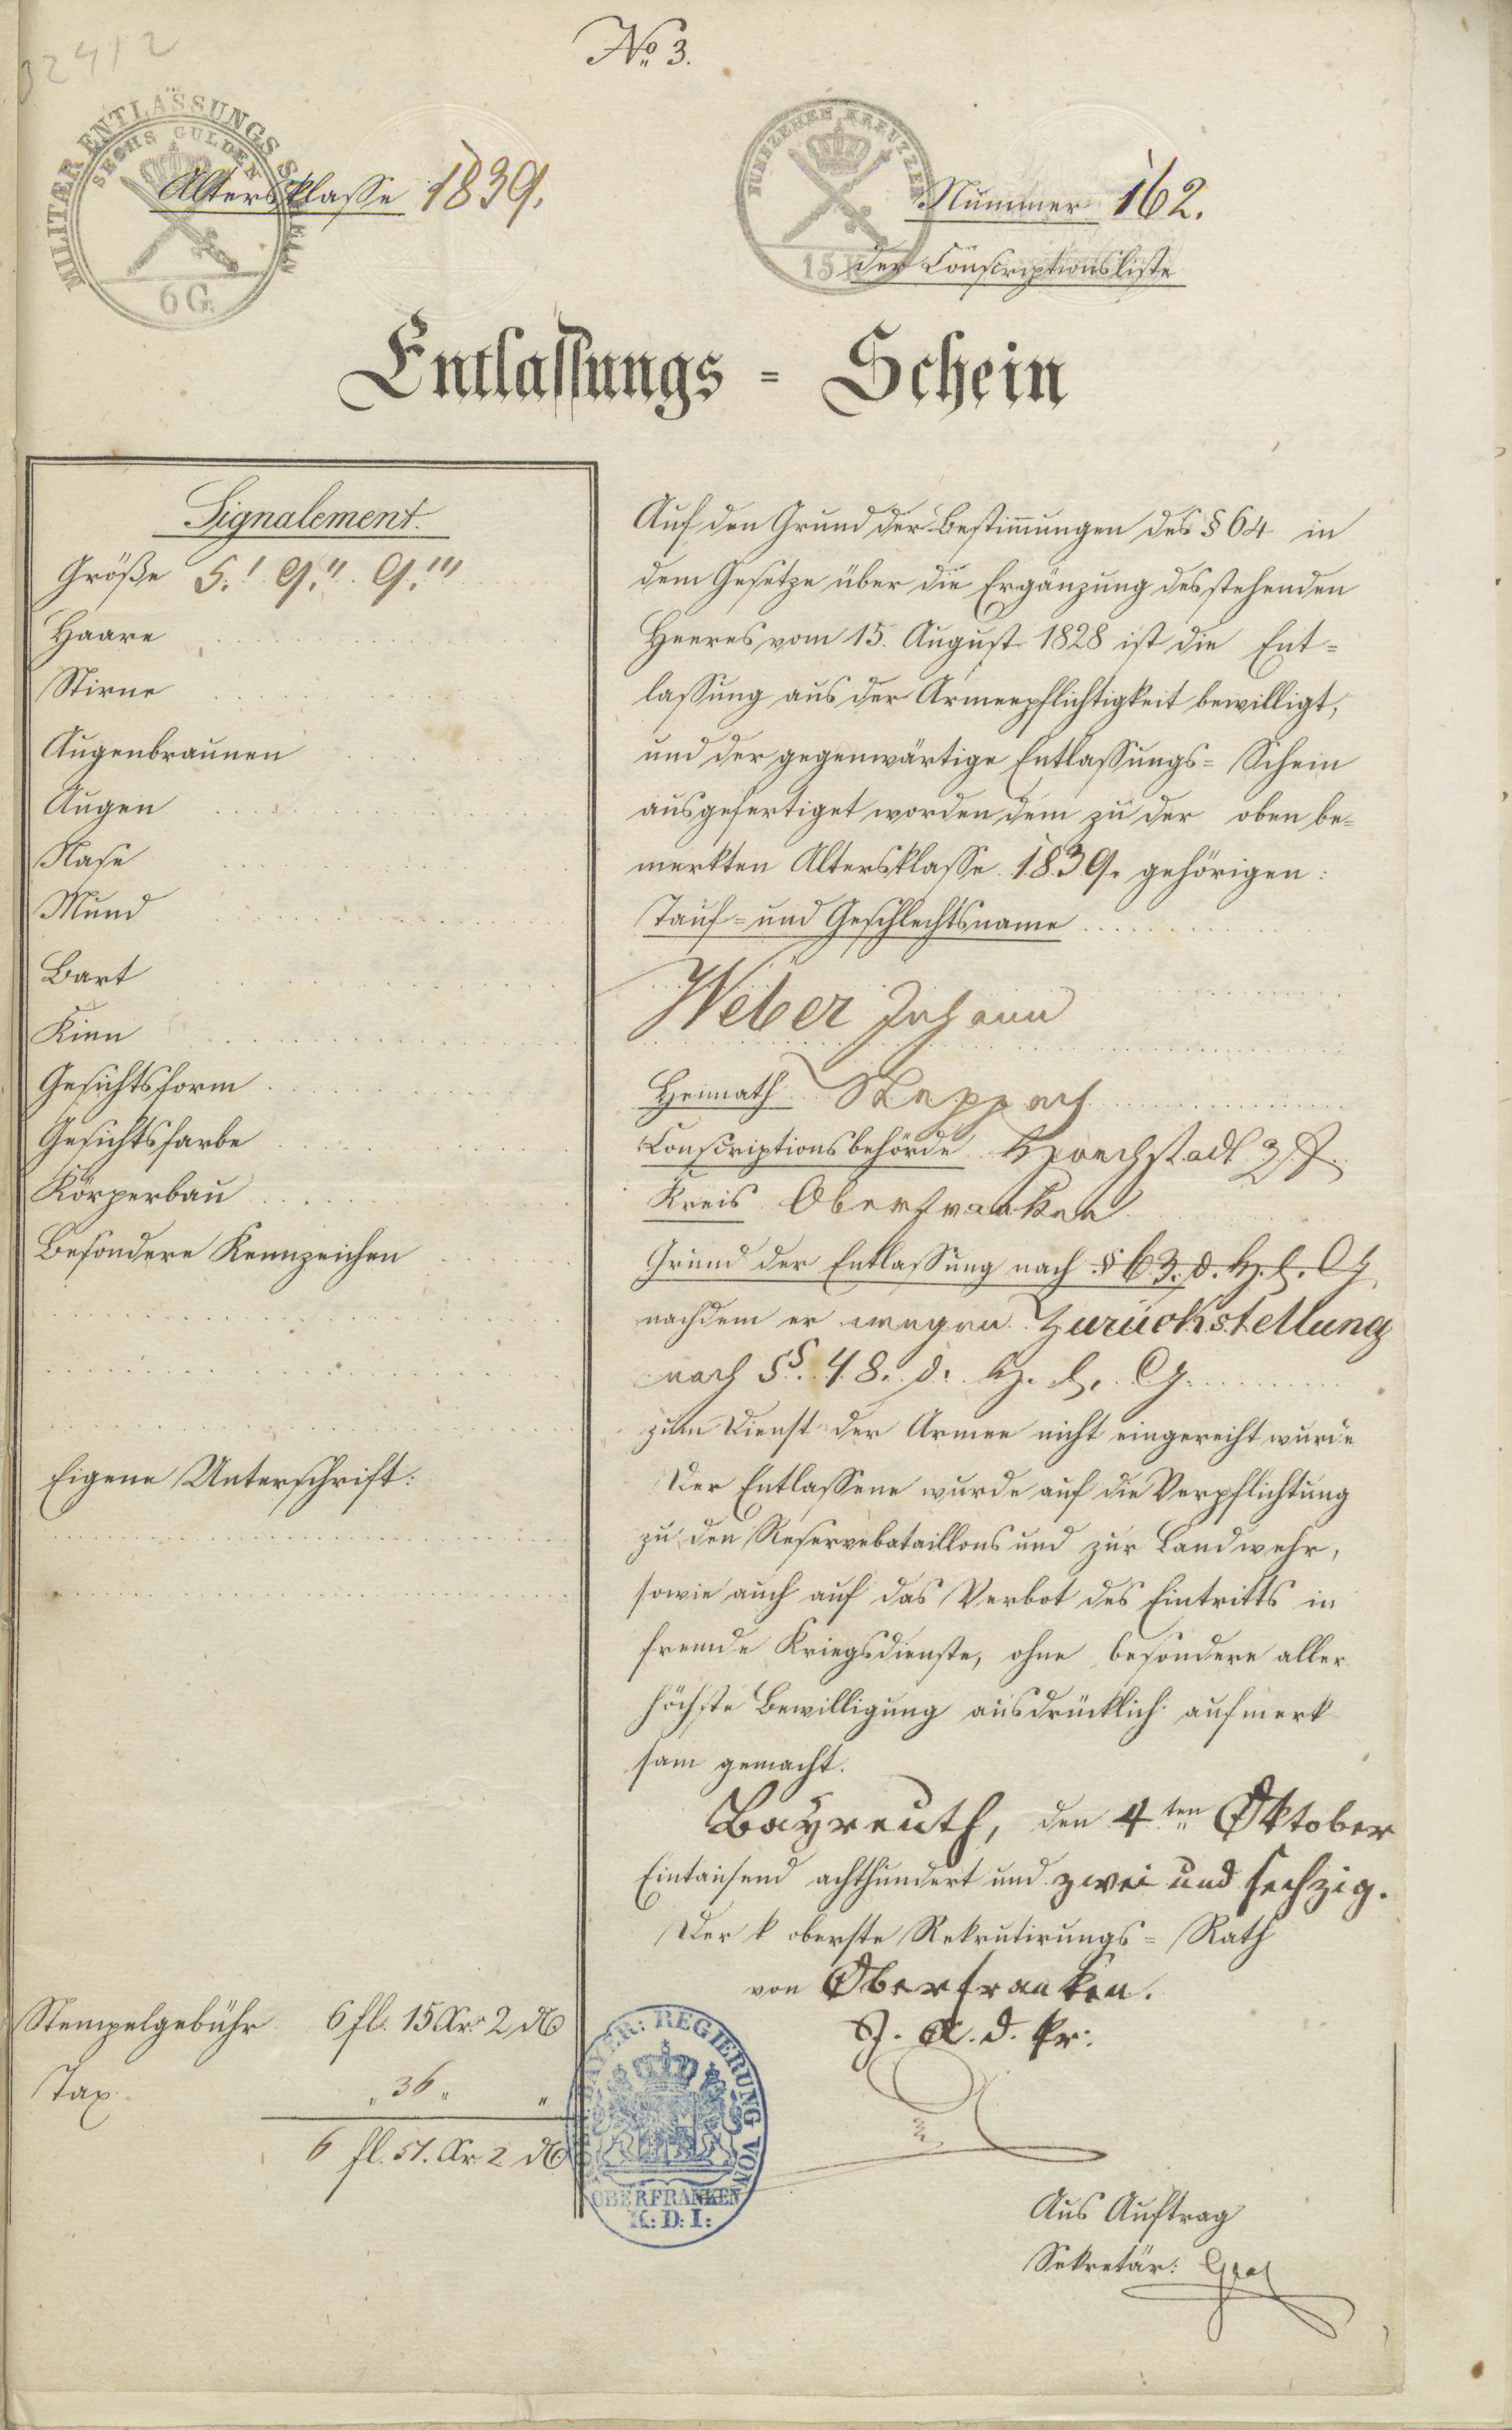 32412
No 3.
MILITÆR ENTLASSUNGS SCHEIN
SECHS GULDEN
6 G.
FUNFZEHEN KREUTZER
15 K
Altersklasse 1839.
Nummer 162.
der Conscriptionsliste
Entlassungs = Schein
Signalement.
Größe 5.' 9." 9.'"
Haare
Stirne
Augenbraunen
Augen
Nase
Mund
Bart
Kinn
Gesichtsform
Gesichtsfarbe
Körperbau
Besondere Kennzeichen
Eigene Unterschrift:
Stempelgebühr 6 fl. 15 Kr. 2 ₰
Tax „ 36 „ „
6 fl. 51. Kr. 2 ₰
Auf den Grund der Bestim̄ungen des § 64 in
dem Gesetze über die Ergänzung des stehenden
Heeres vom 15. August 1828 ist die Ent=
lassung aus der Armeepflichtigkeit bewilligt,
und der gegenwärtige Entlassungs= Schein
ausgefertiget worden dem zu der oben be=
merkten Altersklasse 1839. gehörigen:
Tauf= und Geschlechtsname
Weber Johann
Heimath Steppach
Conscriptionsbehörde Hoechstadt a/A.
Kreis Oberfranken
Grund der Entlassung nach § 63. d. H. E. G.
nachdem er wegen Zurückstellung
nach §§. 48. d. H. E. G.
zum Dienst der Armee nicht eingereiht wurde
Der Entlassene wurde auf die Verpflichtung
zu den Reservebataillons und zur Landwehr,
sowie auch auf das Verbot des Eintritts in
fremde Kriegsdienste, ohne besondere aller
höchste Bewilligung ausdrücklich aufmerk
sam gemacht.
Bayreuth, den 4ten Oktober
Eintausend achthundert und zwei und sechzig.
Der k oberste Rekrutirungs= Rath
von Oberfranken.
J. A. d. Pr.
BAYER: REGIERUNG VON
OBERFRANKEN
K: D: I:
Aus Auftrag
Sekretär: